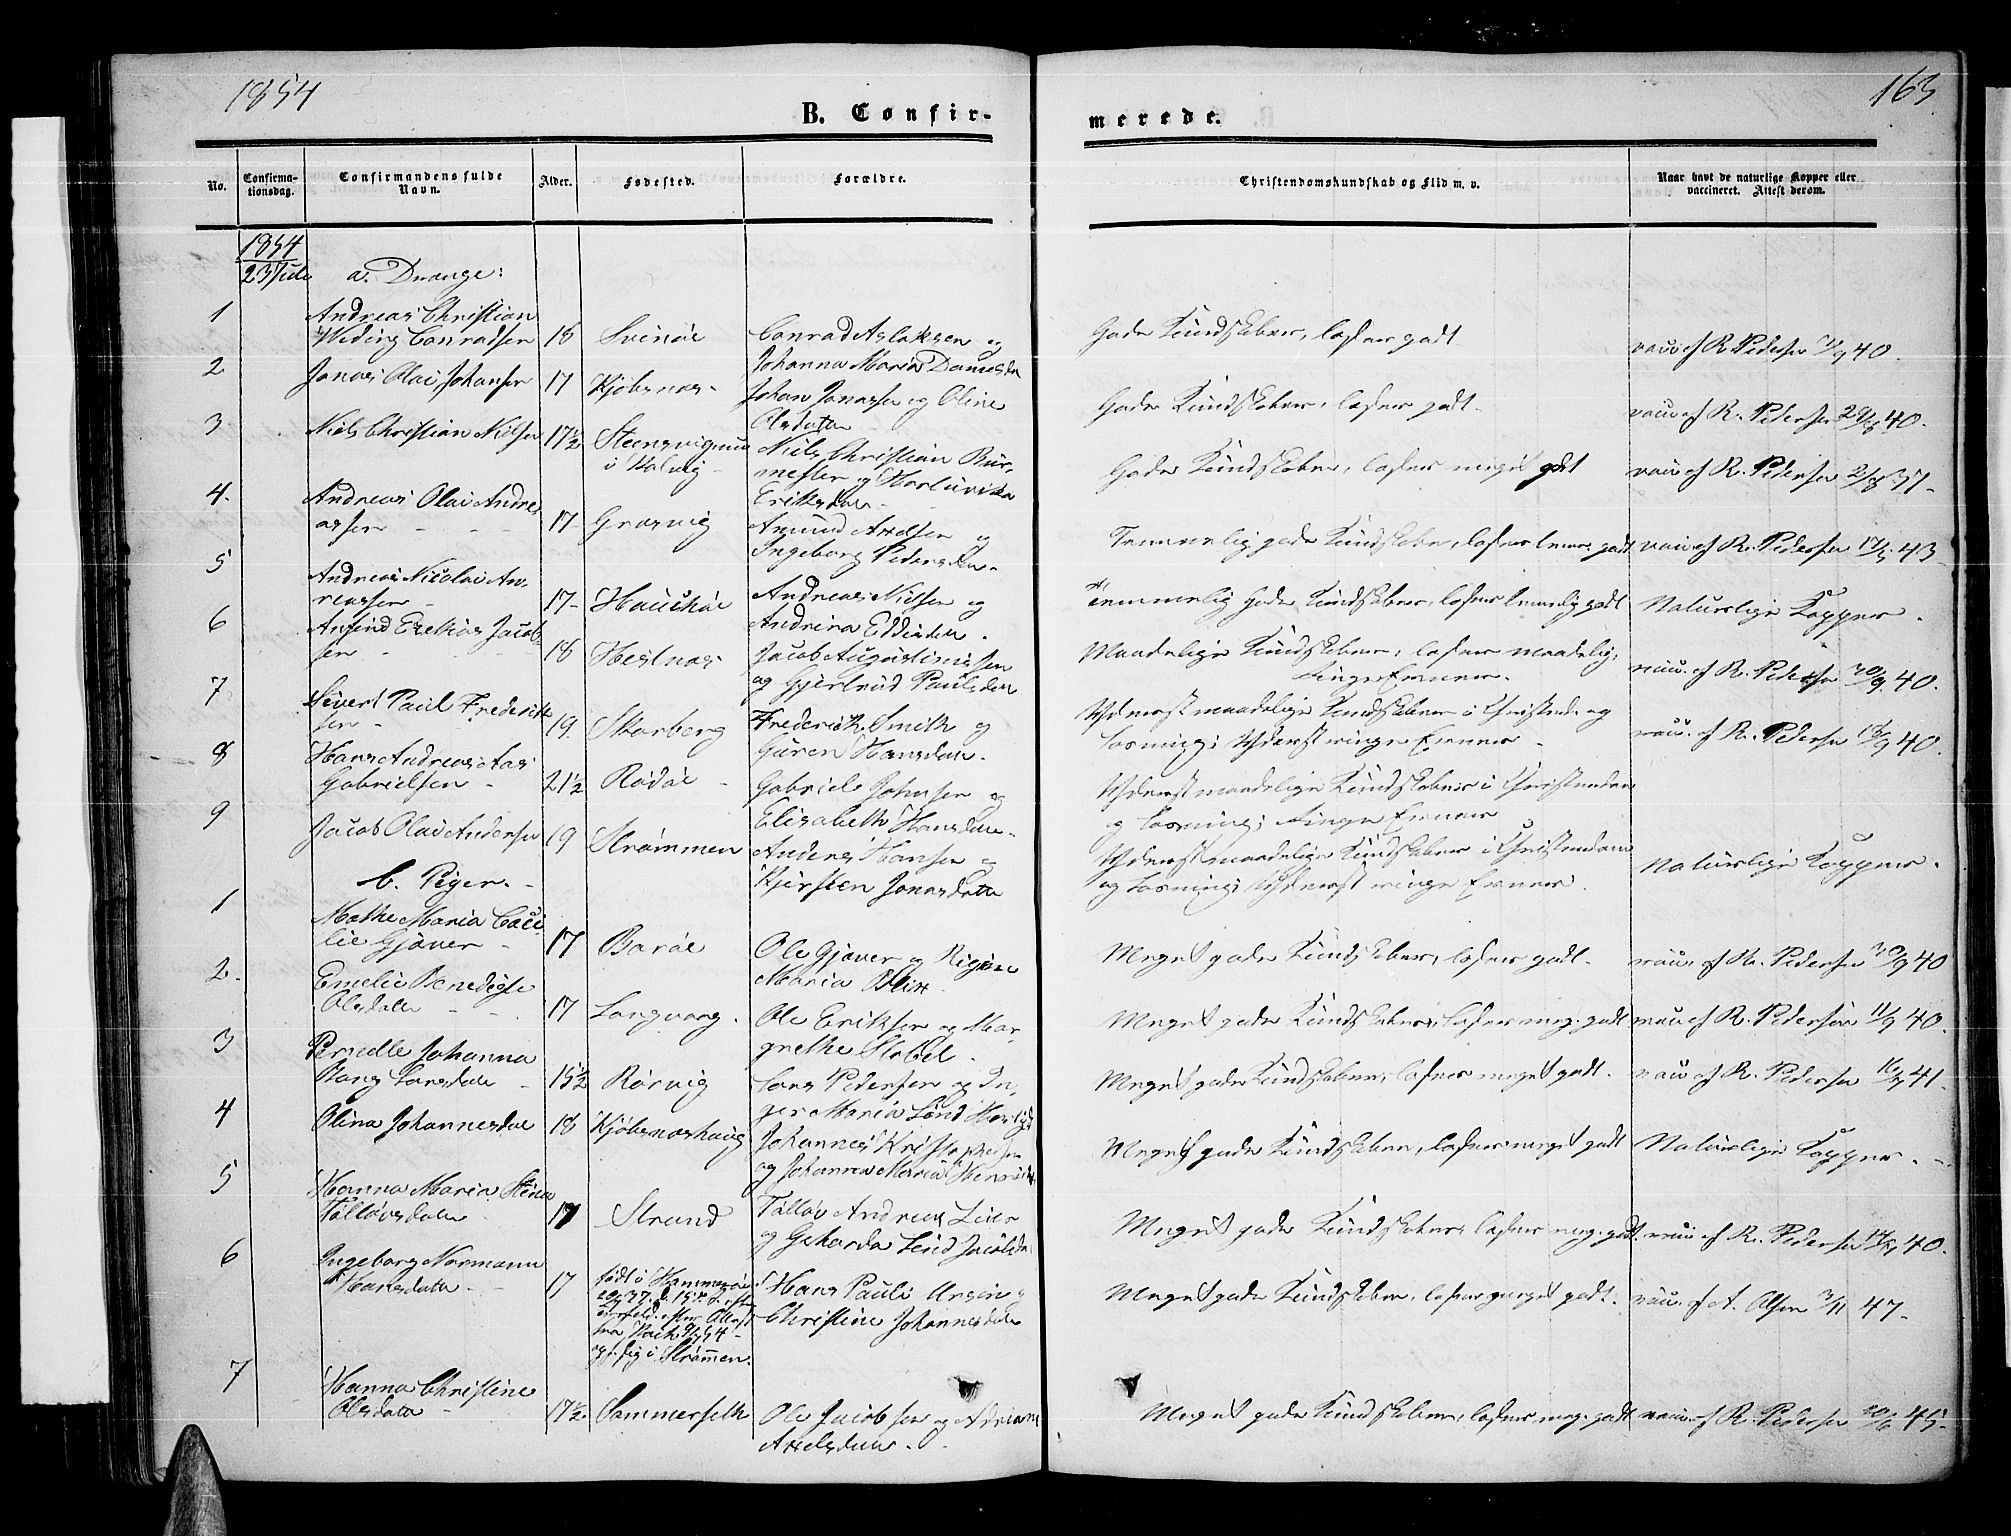 1854
163
B. Confir-
merede.
No.
Confirma-
tionsdag.
Confirmandens fulde
Navn.
Alder.
Fødested.
Forældre.
Christendomskundskab og Flid m. v.
Naar havt de naturlige Kopper eller
vaccineret. Attest derom.
1854
23 Juli a. Drænge:
1 Andreas Christian
Weding Conradsen 18 Svinøe Conrad Aslaksen og
Johanna Maria Danielsda
Gode Kundskaber, læser godt. vacc. af R. Pedersen 40.
2 Jonas Olai Johansen 17 Kjøbsnæs Johan Jonassen og Oline
Olsdatter
Gode Kundskaber, læser godt. vacc. af R. Pedersen 40.
3 Niels Christian Nilsen 17½ Niels Christian Bur-
mester og
Eriksdatter
Gode Kundskaber, læser meget godt vacc. af R. Pedersen 37
4. Andreas Olai Andre-
assen 17 Græsvig Amund Axelsen og
Ingeborg Pedersda
Temmelig gode Kundskaber, læser tem. godt vacc. af R. Pedersen 43
5 Andreas Nicolai An-
reassen 17 Andreas Nilsen og
Andrina
Temmelig gode Kundskaber, læser temmelig godt Naturlige Kopper.
6 Amund Ezekias Jacob-
sen 18 Hestnæs Jacob Augustinussen
og Gjertrud Paulsda
Maadelige Kundskaber, læser maadelig,
ringe Evner. vacc. af R. Pedersen 40.
7 Sivert Paul Frederik-
sen 19. Skarberg Frederik Smith og
Guren Hansdatter.
Yderst maadelige Kundskaber i Christend. og
Læsning; Yderst ringe Evner vacc. af R. Pedersen 40.
8 Hans Andreas Aas
Gabrielsen 21½ Rødøe Gabriel Johnsen og
Elisabeth Hansdatter
Yderst maadelige Kundskaber i Christendom
og Læsning; ringe Evner
9 Jacob Olai Andersen 19 Strømmen Anders Hansen og
Kjersten Jonasdatter
Yderst maadelige Kundskaber i Christendom
og Læsning; Yderst ringe Evner. Naturlige Kopper.
b. Piger.
1 Mathe Maria Ceci-
lie Gjæver 17 Barøe Ole Gjæver og Regine
Maria Blix
Meget gode Kundskaber, læser godt. vacc. af R. Pedersen 40
2. Emelie Benedigte
Olsdatter 17 Langvarg. Ole Eriksen og Mar-
grethe Stobel
Meget gode Kundskaber, læser meg. godt vacc. af R. Pedersen 11/9 40.
3 Pernelle Johanna
Bang Larsdatter 15½ Rørvig Lars Pedersen og In-
ger Maria Lund
Meget gode Kundskaber, læser meget godt. vacc. af R. Pedersen 41.
4 Olina Johannesdat 18 Kjøbsnæshaug Johannes Kristophersen
og Johanna Maria
Meget gode Kundskaber, læser meget godt Naturlige Kopper.
5 Hanna Maria Stina
Tølløvsdatter 17 Strand Tølløv Andreas
og Gekarda Lind Jacobsda
Meget gode Kundskaber, læser meg. godt. vacc. af R. Pedersen 40.
6 Ingeborg Normann
Hansdatter 17 født i Hammerøe
og i Strømmen. Hans Pauli Ursin og
Christine Johannesdatter
Meget gode Kundskaber, læser meget godt. vacc. af A. Olsen 47.
7 Hanna Christine
Olsdatter 17½ Sommerseth Ole Jacobsen og Adriane
Axelsdatter.
Meget gode Kundskaber, læser meg. godt. vacc. af R. Pedersen 20/6 45.